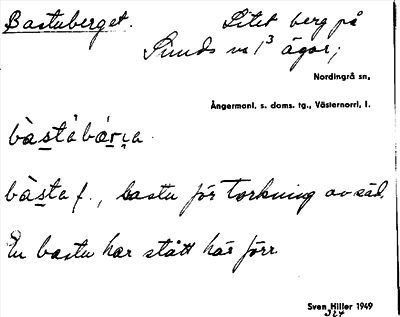 Bastuberget. Litet berg på
Sunds nr 1³ ägor;
Nordingrå sn,
Ångermanl. s. doms. tg., Västernorrl, l.
bàstabárj̣a
bàsta f., bastu för torkning av säd.
En bastu har stått här förr.
Sven Hiller 1949